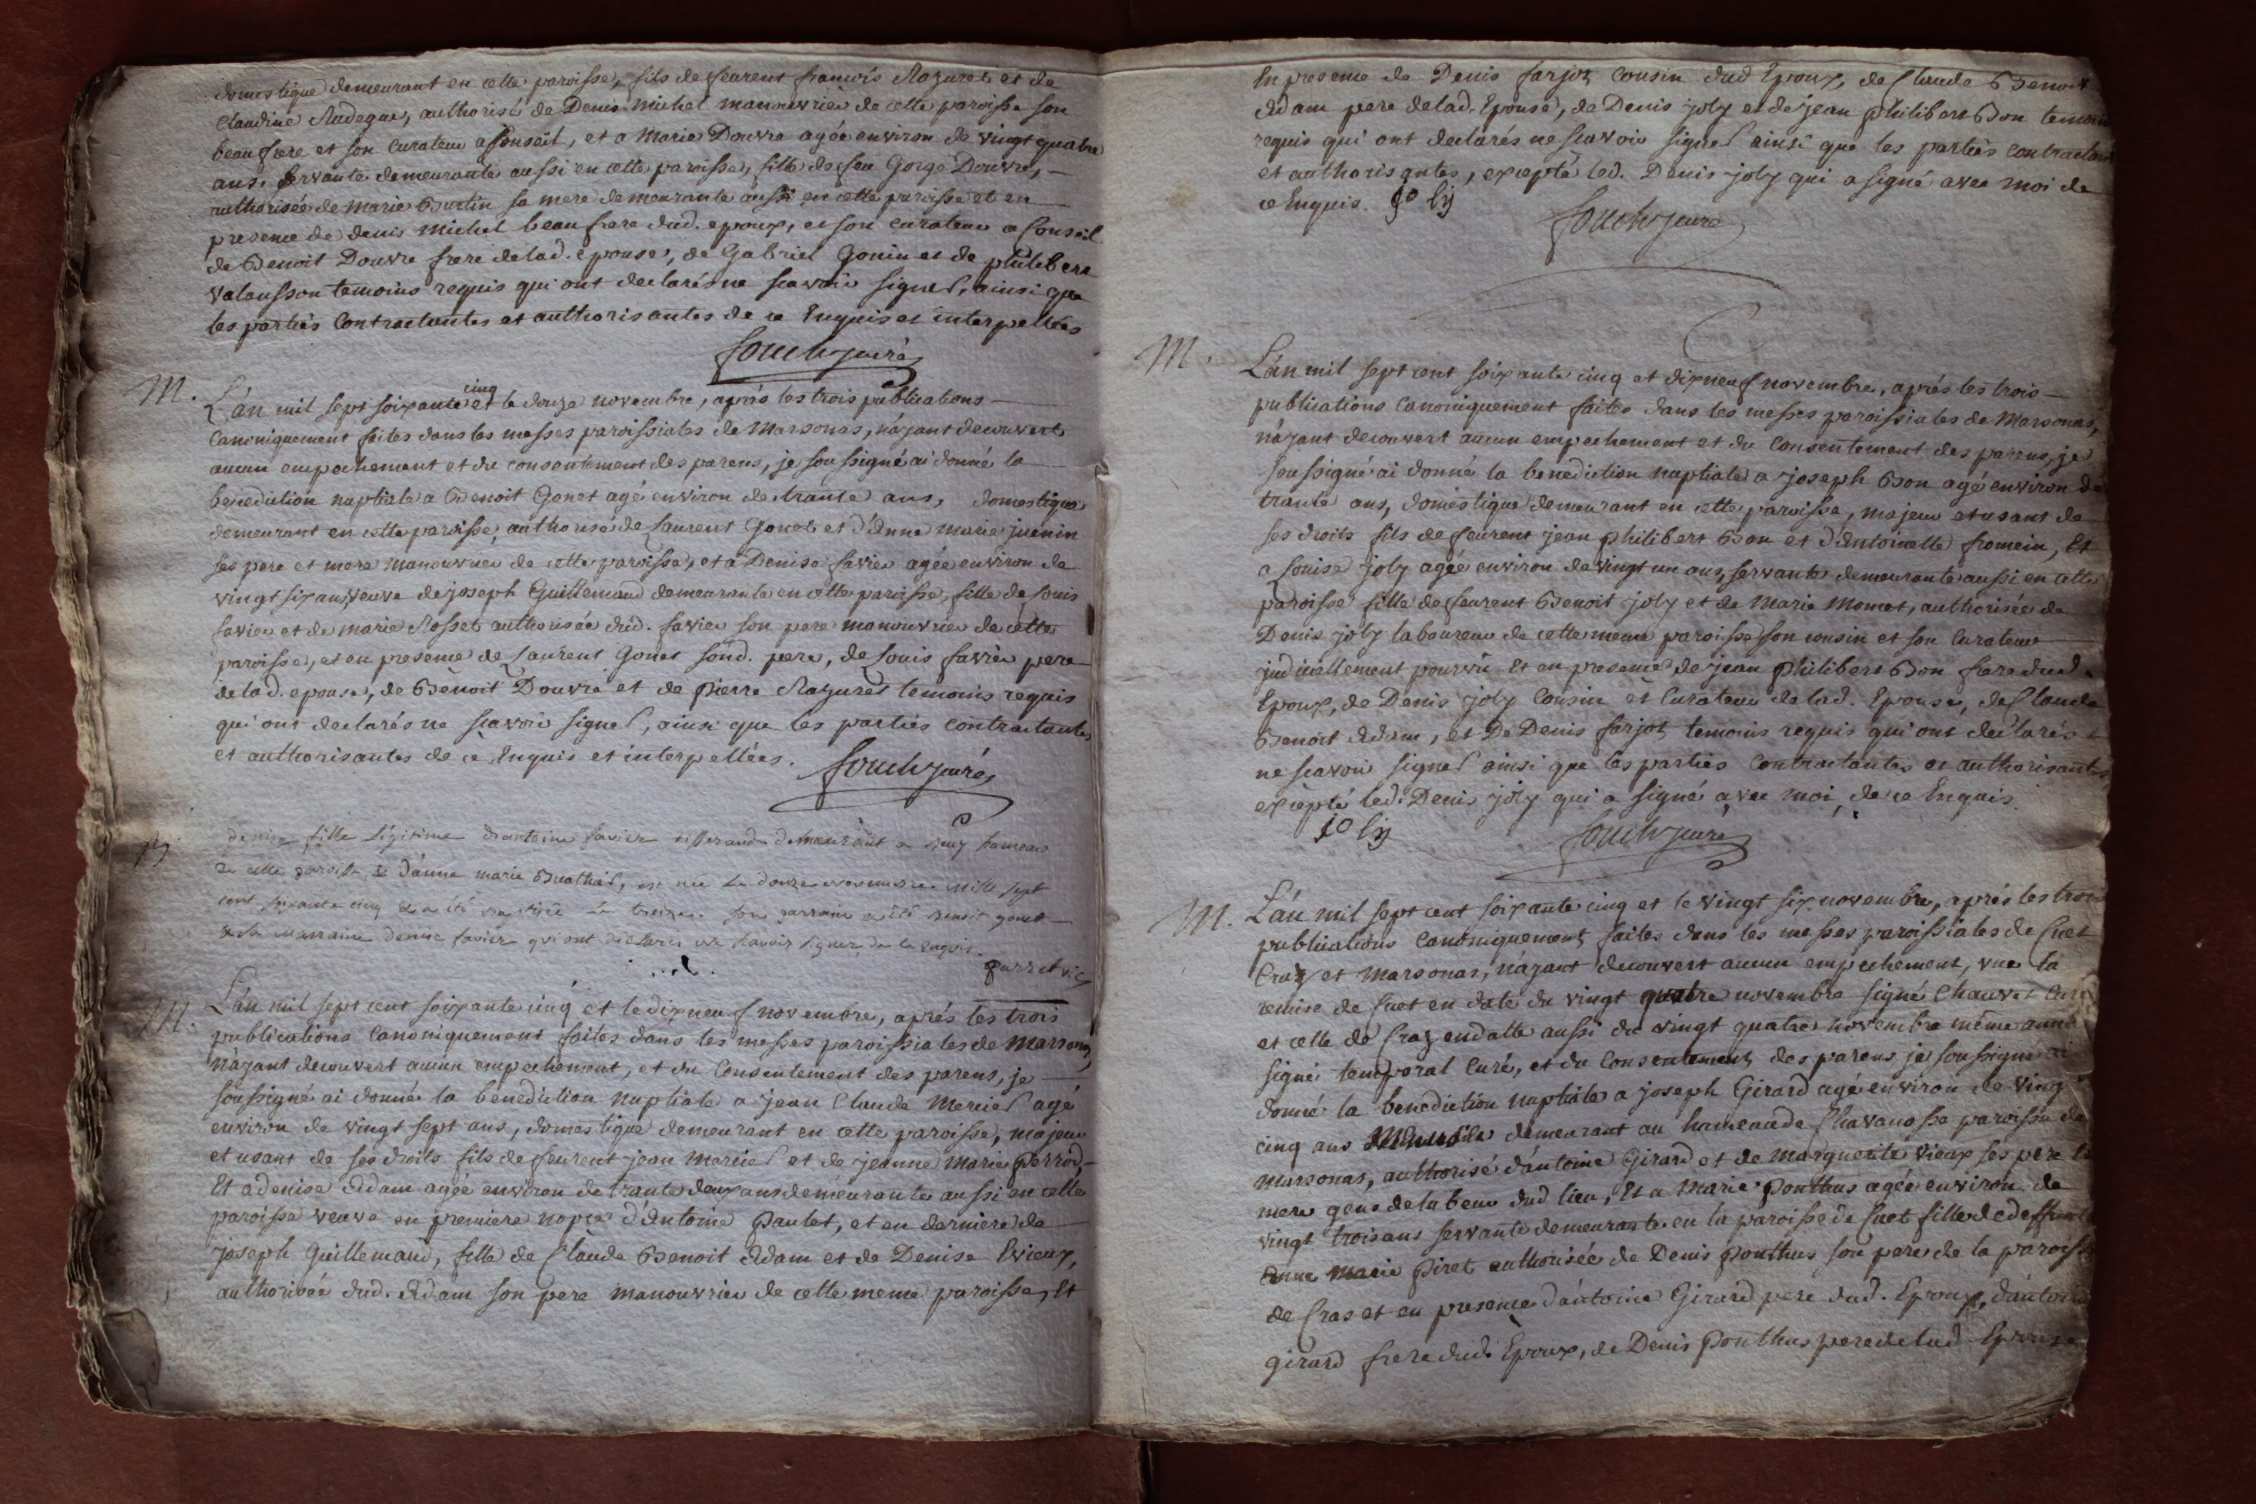 domestique demeurant en cette paroisse, fils de feurent francois Mazuret et de
Claudine Audegue, authorisé de Denis Michel manouvrier de cette paroisse son
beau frere et son curateur a Conseil, et a Marie Douvre agée environ de vingt quatre
ans, servante demeurante aussi en cette paroisse, fille de feu George Douvre,
authorisée de Marie Burtin sa mere demeurante aussi en cette paroisse et en
presence de denis Michel beau frere dud. epoux, et son curateur a Conseil
de Benoit Douvre frere de lad. epouse, de Gabriel Gonin et de philibert
valausson temoins requis qui ont declarés ne scavoir signer, ainsi que
les parties Contractantes et authorisantes de ce Enquis et interpellées
M. L'an mil sept soixante cinq et le douze novembre, aprés les trois publications
Canoniquement faites dans les messes paroissiales de Marsonas, n'ayant decouvert
aucun empechement et du consentement des parens, je soussigné ai donné la
benediction nuptiale a Benoit Gonet agé environ de trante ans, domestique
demeurant en cette paroisse, authorisé de Laurent Gonet et d'Anne Marie juenin
ses pere et mere manouvrier de cette paroisse, et a Denise favier agée environ de
vingt six ans, veuve de joseph Guillemaud demeurante en cette paroisse, fille de Louis
favier et de marie Rosset authorisée dud. favier son pere manouvrier de cette
paroisse, et en presence de Laurent Gonet sond. pere, de Louis favier pere
de lad. epouse, de Benoit Douvre et de pierre Mazuret temoins requis
qui ont declarés ne scavoir signer, ainsi que les parties contractantes
et authorisantes de ce Enquis et interpellées.
denise fille légitime d'antoine favier tisserand demeurant a hameau
de cette paroisse, et d'anne marie Buathier, est née le douze novembre mille sept
cent soixante cinq et a été baptisée le treize. son parrain a été benoit gonet
et la marraine denise favier qui ont declarés ne scavoir signer de ce enquis.
parret vic
M. L'an mil sept cent soixante cinq et le dixneuf novembre, aprés les trois
publications Canoniquement faites dans les messes paroissiales de Marsonas
n'ayant decouvert aucun empechement, et du Consentement des parens, je
soussigné ai donné la benediction nuptiale a jean Claude Mercier agé
environ de vingt sept ans, domestique demeurant en cette paroisse, majeur
et usant de ses droits fils de feurent jean Mercier et de jeanne Marie perrod,
Et a denise Adam agée environ de trante deux ans demeurante aussi en cette
paroisse veuve en premiere nopce d'Antoine Paulet, et en derniere de
joseph Guillemaud, fille de Claude Benoit Adam et de Denise Evieux,
authorisée dud. Adam son pere manouvrier de cette meme paroisse, Et
En presence de Denis farjot cousin dud Epoux, de Claude Benoit
Adam pere de lad. Epouse, de Denis joly et de jean philibert Bon temoins
requis qui ont declarés ne scavoir signer ainsi que les parties contractantes
et authorisantes, excepté led. Denis joly qui a signé avec moi de
ce Enquis. joly
M. L'an mil sept cent soixante cinq et dixneuf novembre, aprés les trois
publications Canoniquement faites dans les messes paroissiales de Marsonas,
n'ayant decouvert aucun empechement et du Consentement des parens, je
soussigné ai donné la benediction nuptiale a joseph Bon agé environ de
trante ans, domestique demeurant en cette paroisse, majeur et usant de
ses droits fils de feurent jean philibert Bon et d'Antoinette fromein, Et
a Louise joly agée environ de vingt un ans, servante demeurante aussi en cette
paroisse fille de feurent Benoit joly et de Marie Momet, authorisée de
Denis joly laboureur de cette meme paroisse son cousin et son Curateur
judiciellement pourvu Et en presence de jean philibert Bon frere dud.
Epoux, de Denis joly Cousin et Curateur de lad. Epouse, de Claude
Benoit Adam, et De Denis farjot temoins requis qui ont declarés
ne scavoir signer ainsi que les parties Contractantes et authorisantes
excepté led. Denis joly qui a signé avec moi, de ce Enquis.
joly
M. L'an mil sept cent soixante cinq et le vingt six novembre, aprés les trois
publications Canoniquement faites dans les messes paroissiales de Cuet
Cras et Marsonas, n'ayant decouvert aucun empechement, vue la
remise de Cuet en date du vingt quatre novembre signé Chauvet Curé
et celle de Cras en datte aussi du vingt quatre novembre même année
signé temporal Curé, et du Consentement des parens je soussigné ai
donné la benediction nuptiale a joseph Girard agé environ de vingt
cinq ans demeurant au hameau de Chavanosse paroisse de
Marsonas, authorisé d'antoine Girard et de Marguerite vieux ses pere et
mere gens de labeur dud lieu, Et a Marie Ponthus agée environ de
vingt trois ans servante demeurante en la paroisse de Cuet fille de deffunte
Anne Marie Piret authorisée de Denis Ponthus son pere de la paroisse
de Cras et en presence d'antoine Girard pere dud. Epoux, d'antoine
girard frere dud. Epoux, de Denis Ponthus pere de lad Epouse